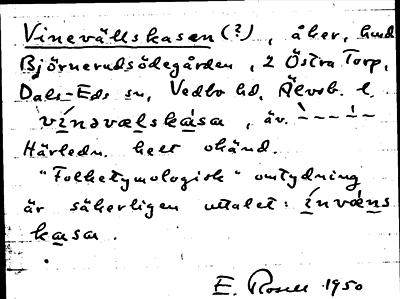 Vinevällskasen (?), åker, hmd
Björnerudsödegården, 2 Östra Torp,
Dals-Eds sn, Vedbo hd, Älvsb. l.
vínəvælskàsa, äv. `– – – ´– –
Härledn. helt okänd.
"Folketymologisk" omtydning
är säkerligen uttalet: ínvæns
kasa.
E. Rosell 1950